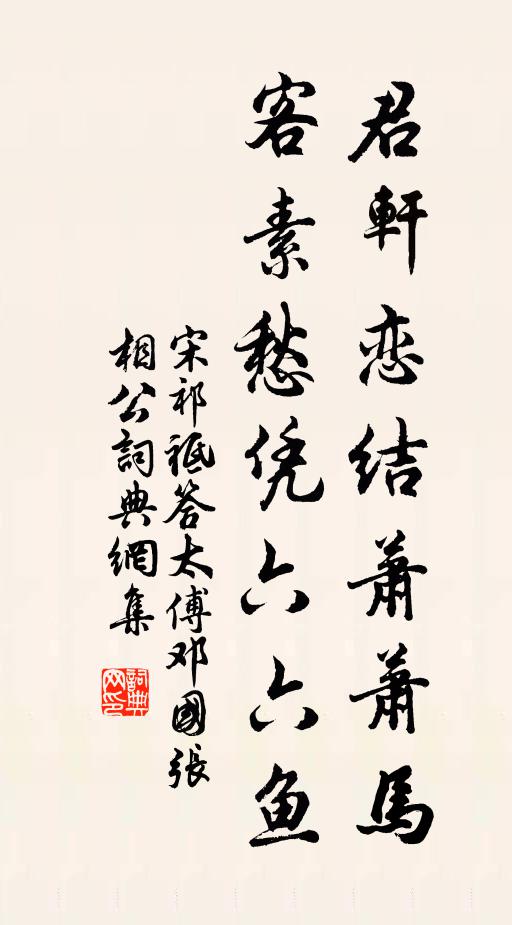 君軒恋结萧萧馬
客素愁凭六六鱼
宋祁祗答太傅邓國張
相公詞典網集
詞典网印